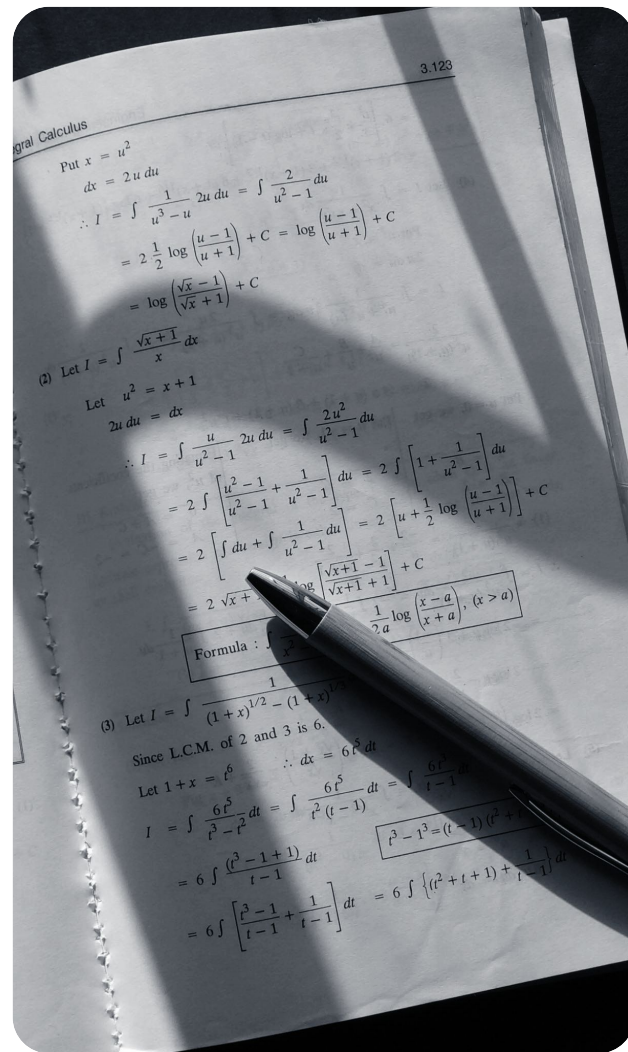 3.123
gral Calculus
Put x = u²
dx = 2u du
∴ I = ∫ 1/(u³ − u) 2u du = ∫ 2/(u² − 1) du
= 2 1/2 log ((u − 1)/(u + 1)) + C = log ((u − 1)/(u + 1)) + C
= log ((√x − 1)/(√x + 1)) + C
(2) Let I = ∫ √(x + 1)/x dx
Let u² = x + 1
2u du = dx
∴ I = ∫ u/(u² − 1) 2u du = ∫ 2u²/(u² − 1) du
= 2 ∫ [(u² − 1)/(u² − 1) + 1/(u² − 1)] du = 2 ∫ [1 + 1/(u² − 1)] du
= 2 [∫ du + ∫ 1/(u² − 1) du] = 2 [u + 1/2 log ((u − 1)/(u + 1))] + C
= 2 √x + log [(√(x+1) − 1)/(√(x+1) + 1)] + C
Formula : ∫ 1/2a log ((x − a)/(x + a)), (x > a)
(3) Let I = ∫ 1/((1 + x)^1/2 − (1 + x)
Since L.C.M. of 2 and 3 is 6.
Let 1 + x = t⁶ ∴ dx = 6t⁵ dt
I = ∫ 6t⁵/(t³ − t²) dt = ∫ 6t⁵/(t² (t − 1)) dt = ∫ 6t³/(t − 1)
t³ − 1³ = (t − 1) (t² + t
= 6 ∫ (t³ − 1 + 1)/(t − 1) dt
= 6 ∫ [(t³ − 1)/(t − 1) + 1/(t − 1)] dt = 6 ∫ {(t² + t + 1) + 1/(t − 1)} dt